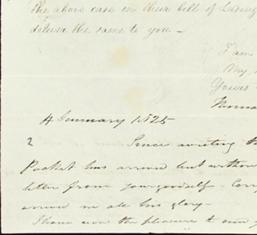 the above case on their bill of Lading
deliver the same to you -
I am
Yours
4 January 1825
2 Since writing the
Packet has arrived but without
letter from yourself -
arrived in all his glory -
I have now the pleasure to